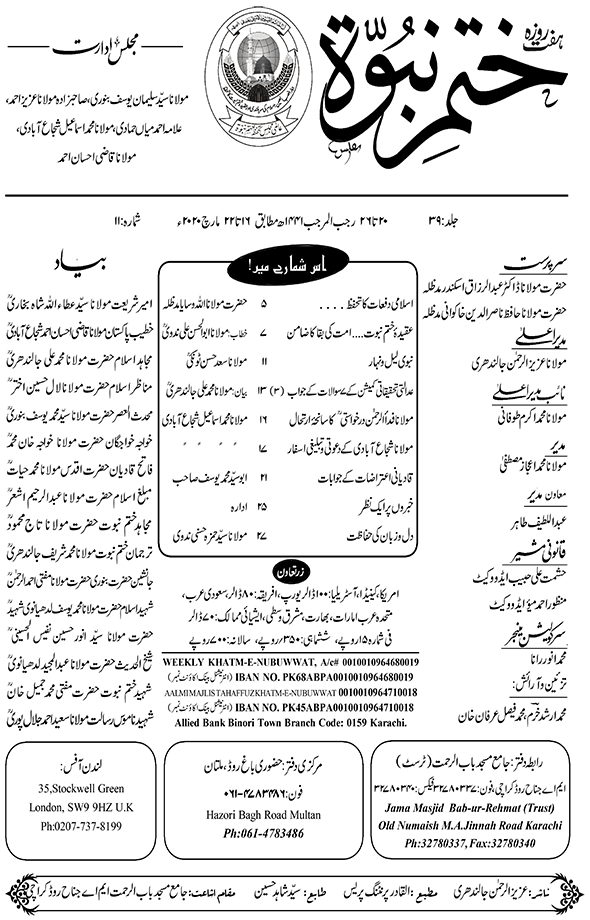 ہفت روزہ
ختم نبوۃ
مجلس ادارت
مولانا سید سلیمان یوسف بنوری، صاحبزادہ مولانا عزیز احمد،
علامہ احمد میاں حمادی، مولانا محمد اسماعیل شجاع آبادی،
مولانا قاضی احسان احمد
جلد: ۳۹ ۲۰ تا ۲۶ رجب المرجب ۱۴۴۱ھ مطابق ۱۶ تا ۲۲ مارچ ۲۰۲۰ء شمارہ: ۱۱
سرپرست
حضرت مولانا ڈاکٹر عبدالرزاق اسکندر مدظلہ
حضرت مولانا حافظ ناصر الدین خاکوانی مدظلہ
مدیر اعلیٰ
مولانا عزیز الرحمٰن جالندھری
نائب مدیر اعلیٰ
مولانا محمد اکرم طوفانی
مدیر
مولانا محمد اعجاز مصطفیٰ
معاون مدیر
عبداللطیف طاہر
قانونی مشیر
حشمت علی حبیب ایڈووکیٹ
منظور احمد میؤ ایڈووکیٹ
سرکولیشن منیجر
محمد انور رانا
تزئین و آرائش:
محمد ارشد خرم، محمد فیصل عرفان خان
اس شمارے میں!
اسلامی دفعات کا تحفظ.... ۵ حضرت مولانا اللہ وسایا مدظلہ
عقیدہ ختم نبوت.... امت کی بقا کا ضامن ۷ خطاب: مولانا ابوالحسن علی ندویؒ
نبوی لیل و نہار ۱۱ مولانا سعد حسن ٹونکیؒ
عدالتی تحقیقاتی کمیشن کے ۷ سوالات کے جواب (۳) ۱۳ بیان: مولانا محمد علی جالندھریؒ
مولانا فداء الرحمٰن درخواستیؒ کا سانحۂ ارتحال ۱۶ مولانا محمد اسماعیل شجاع آبادی
مولانا شجاع آبادی کے دعوتی و تبلیغی اسفار ۱۷ " " " "
قادیانی اعتراضات کے جوابات ۲۱ ابو سید محمد یوسف صاحب
خبروں پر ایک نظر ۲۵ ادارہ
دل و زبان کی حفاظت ۲۷ مولانا سید حمزہ حسنی ندوی
بیاد
امیر شریعت مولانا سید عطاء اللہ شاہ بخاریؒ
خطیب پاکستان مولانا قاضی احسان احمد شجاع آبادیؒ
مجاہد اسلام حضرت مولانا محمد علی جالندھریؒ
مناظر اسلام حضرت مولانا لال حسین اخترؒ
محدث العصر حضرت مولانا سید محمد یوسف بنوریؒ
خواجہ خواجگان حضرت مولانا خواجہ خان محمدؒ
فاتح قادیان حضرت اقدس مولانا محمد حیاتؒ
مبلغ اسلام حضرت مولانا عبدالرحیم اشعرؒ
مجاہد ختم نبوت حضرت مولانا تاج محمودؒ
ترجمان ختم نبوت حضرت مولانا محمد شریف جالندھریؒ
جانشین حضرت بنوری حضرت مولانا مفتی احمد الرحمٰنؒ
شہید اسلام حضرت مولانا محمد یوسف لدھیانوی شہیدؒ
حضرت مولانا سید انور حسین نفیس الحسینیؒ
شیخ الحدیث حضرت مولانا عبدالمجید لدھیانویؒ
شہید ختم نبوت حضرت مفتی محمد جمیل خانؒ
شہید ناموس رسالت مولانا سعید احمد جلال پوریؒ
زرتعاون
امریکا، کینیڈا، آسٹریلیا: ۱۰۰ ڈالر یورپ، افریقہ: ۸۰ ڈالر، سعودی عرب،
متحدہ عرب امارات، بھارت، مشرق وسطیٰ، ایشیائی ممالک: ۷۰ ڈالر
فی شمارہ ۱۵ روپے، ششماہی: ۳۵۰ روپے، سالانہ: ۷۰۰ روپے
WEEKLY KHATM-E-NUBUWWAT, A/c# 0010010964680019
IBAN NO. PK68ABPA0010010964680019 (انٹرنیشنل بینک اکاؤنٹ نمبر)
AALMIMAJLISTAHAFFUZKHATM-E-NUBUWWAT 0010010964710018
IBAN NO. PK45ABPA0010010964710018 (انٹرنیشنل بینک اکاؤنٹ نمبر)
Allied Bank Binori Town Branch Code: 0159 Karachi.
رابطہ دفتر: جامع مسجد باب الرحمت (ٹرسٹ)
ایم اے جناح روڈ کراچی، فون: ۳۲۷۸۰۳۳۷، فیکس: ۳۲۷۸۰۳۴۰
Jama Masjid Bab-ur-Rehmat (Trust)
Old Numaish M.A.Jinnah Road Karachi
Ph:32780337, Fax:32780340
مرکزی دفتر: حضوری باغ روڈ، ملتان
فون: ۰۶۱-۴۷۸۳۴۸۶
Hazori Bagh Road Multan
Ph:061-4783486
لندن آفس:
35,Stockwell Green
London, SW9 9HZ U.K
Ph:0207-737-8199
عزیز الرحمٰن جالندھری مطبع: القادر پرنٹنگ پریس طابع: سید شاہد حسین مقام اشاعت: جامع مسجد باب الرحمت ایم اے جناح روڈ کراچی